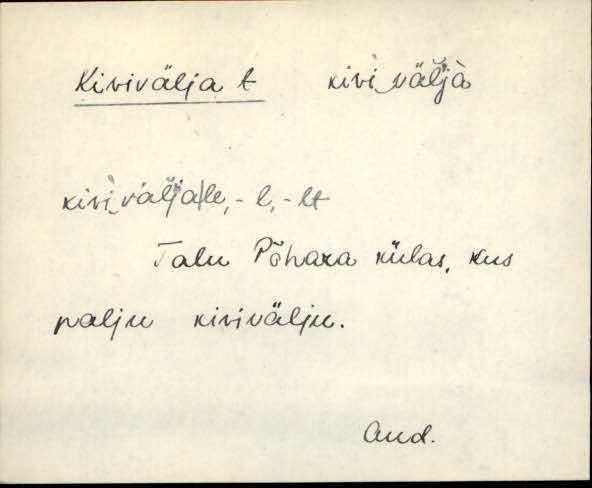 Kivivälja t kivi̮väl̆jà
kivi̮väl̆ja|le, - l, - lt
Talu Põhara külas, kus
palju kivivälju.
Aud.